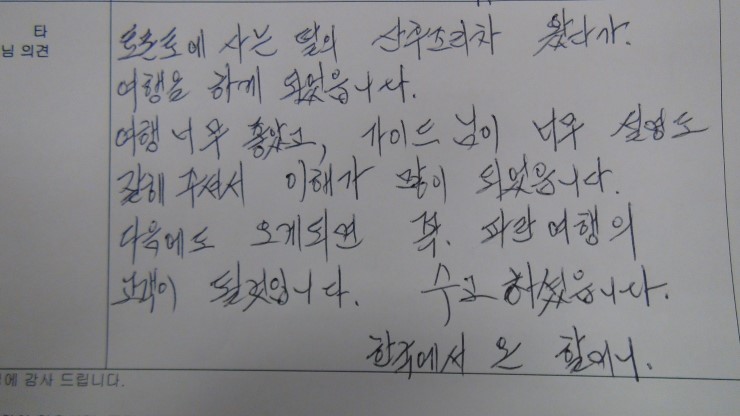 타
님 의견
토론토에 사는 딸의 산후조리차 왔다가.
여행을 하게 되었읍니다.
여행 너무 좋았고, 가이드 님이 너무 설명도
잘해 주셔서 이해가 많이 되었읍니다.
다음에도 오게되면 꼭. 파란 여행의
고객이 될것입니다. 수고 하셨읍니다.
한국에서 온 할머니.
에 감사 드립니다.